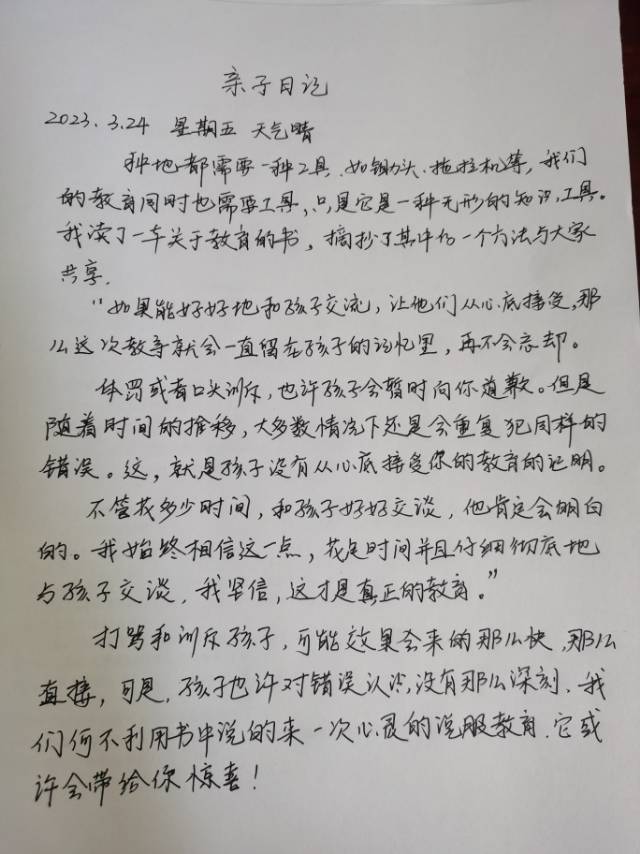 亲子日记
2023.3.24 星期五 天气晴
种地都需要一种工具.如锄头.拖拉机等,我们
的教育同时也需要工具,只是它是一种无形的知识,工具。
我读了一本关于教育的书,摘抄了其中的一个方法与大家
共享.
"如果能好好地和孩子交流,让他们从心底接受,那
么这次教导就会一直留在孩子的记忆里,再不会忘却。
体罚或者口头训斥,也许孩子会暂时向你道歉。但是
随着时间的推移,大多数情况下还是会重复犯同样的
错误。这,就是孩子没有从心底接受你的教育的证明。
不管花多少时间,和孩子好好交谈,他肯定会明白
的。我始终相信这一点,花足时间并且仔细彻底地
与孩子交谈,我坚信,这才是真正的教育。"
打骂和训斥孩子,可能效果会来的那么快,那么
直接,可是,孩子也许对错误认识,没有那么深刻.我
们何不利用书中说的来一次心灵的说服教育.它或
许会带给你惊喜!